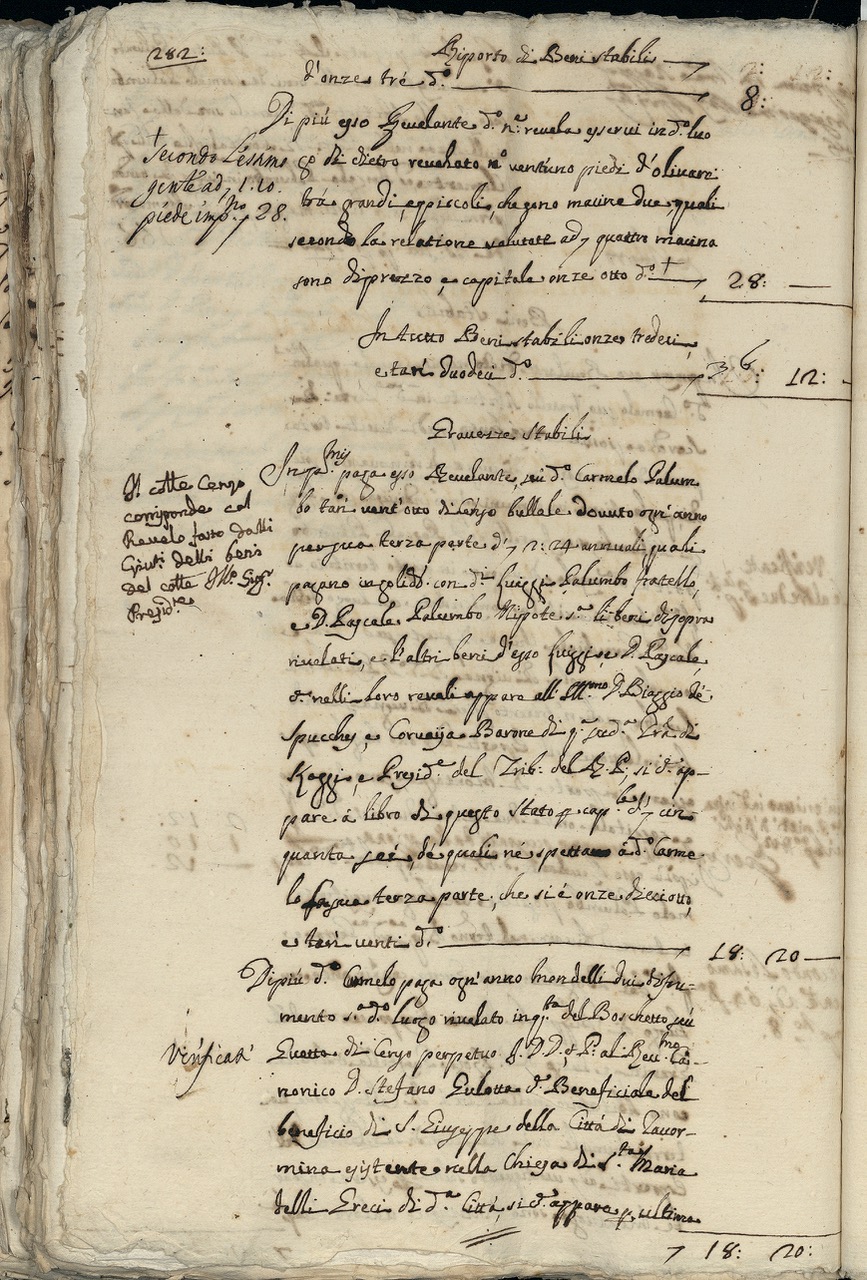 282:
Riporto di Beni stabili
d'onze tré d.o 8:
Di più esso Revelante d.o n.e revela esservi in d.o luo
go di dietro revelato n.o ventuno piedi d'olivari
trà grandi, e piccoli, che sono macine due, quali
secondo la relatione valutate ad quattro macina
sono di prezzo, e capitale onze otto d.o + 28: —
+ secondo
gente ad 1.10.
piede imp.no 28.
In tutto Beni stabili onze tredeci,
e tarì duodeci d.o 36: 12:
Gravezze stabili
In p.a mis paga esso Revelante, seu d.o Carmelo Palum
bo tarì vent'otto di Censo bullale dovuto ogn'anno
per sua terza parte d' 2: 24 annuali quali
pagano in solidò con d.i Luiggi Palumbo fratello,
e D. Pascale Palumbo Nipote s.a li beni di sopra
rivelati, e l'altri beni d'esso Luiggi, e D. Pascale,
nelli loro reveli appare all'Ill.mo D. Biaggio dé
Spucches, e Corvaija Barone di q.a sud.a Trã di
Kaggi, e Presid.e del Trib: del R. P. si d.e ap-
pare à libro di questo stato p cap.le d' cin
quanta sei, dé quali né spetta à d.o Carme
lo sua terza parte, che si é onze dieciotto,
e tarì venti d.o 18: 20 —
Il
corrisponde col
Revelo fatto dalli
Giur.i delli beni
del Ill.e Sig.r
Presid.e
Di più d.o Carmelo paga ogn'anno mondelli dui di fru-
mento s.a d.o luogo rivelato in q.ta del Boschetto, seu
Guotta di Censo perpetuo al Rev.mo Ca-
nonico D. Stefano Gulotta Beneficiale del
beneficio di S. Giuseppe della Città di Taor-
mina esistente nella Chiesa di S.ta Maria
delli Greci di d.a Città, si d.e appare p ultimo
Verificat'
18: 20: